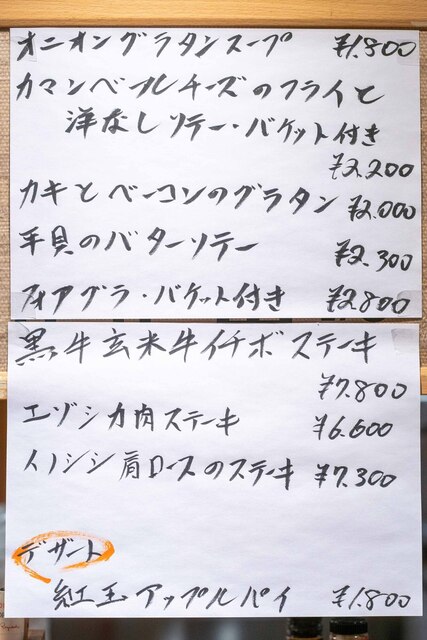 オニオングラタンスープ ¥1.800
カマンベールチーズのフライと
洋なしソテー・バケット付き
¥2.200
カキとベーコンのグラタン ¥2.000
平貝のバターソテー ¥2.300
フォアグラ・バケット付き ¥2.800
黒牛玄米牛イチボステーキ
¥7.800
エゾシカ肉ステーキ ¥6.600
イノシシ肩ロースのステーキ ¥7.300
デザート
紅玉アップルパイ ¥1.800